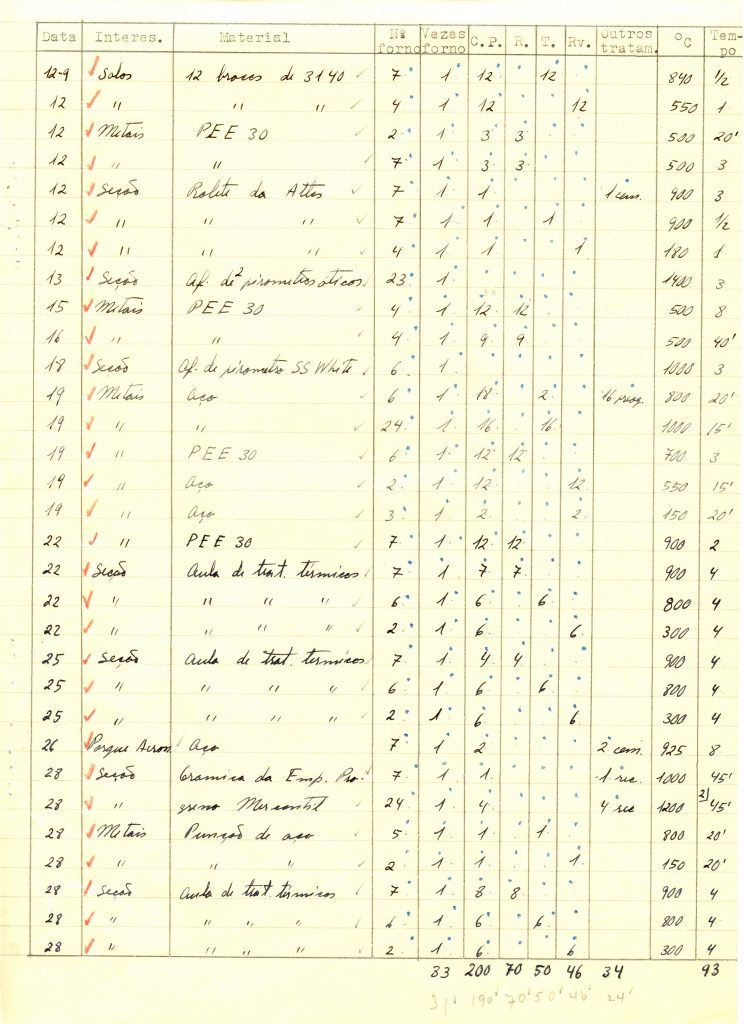 Data Interes. Material Nº forno Vezes forno C.P. R. T. Rv. Outros tratam. ºC Tem-po
12-9 Salos 12 brocas de 3140 7 1 12 12 840 1/2
12 " " " 4 1 12 12 550 1
12 Metais PEE 30 2 1 3 3 500 20'
12 " " 7 1 3 3 500 3
12 Seção Rolete da Atlas 7 1 1 1 cem. 900 3
12 " " " 7 1 1 1 900 1/2
12 " " " 4 1 1 1 180 1
13 Seção Af. de 2 pirometros óticos 23 1 1400 3
15 Metais PEE 30 4 1 12 12 500 8
16 " " 4 1 9 9 500 40'
18 Seção Af. de pirometro SS White 6 1 1000 3
19 Metais Aço 6 1 18 2 16 800 20'
19 " " 24 1 16 16 1000 15'
19 " PEE 30 6 1 12 12 700 3
19 " Aço 2 1 12 12 550 15'
19 " Aço 3 1 2 2 150 20'
22 " PEE 30 7 1 12 12 900 2
22 Seção Aula de trat. térmicos 7 1 7 7 900 4
22 " " " " 6 1 6 6 800 4
22 " " " " 2 1 6 6 300 4
25 Seção Aula de trat. termicos 7 1 4 4 900 4
25 " " " " 6 1 6 6 800 4
25 " " " " 2 1 6 6 300 4
26 Parque Aeron. Aço 7 1 2 2 cem. 925 8
28 Seção Ceramica da Emp. Pro- 7 1 1 1 rec. 1000 45'
28 " gresso Mercantil 24 1 4 4 rec 1200 2) 45'
28 Metais Punção de aço 5 1 1 1 800 20'
28 " " " 2 1 1 1 150 20'
28 Seção Aula de trat. térmicos 7 1 8 8 900 4
28 " " " " 6 1 6 6 800 4
28 " " " " 2 1 6 6 300 4
33 200 70 50 46 34 93
31' 190' 70' 50' 46' 24'